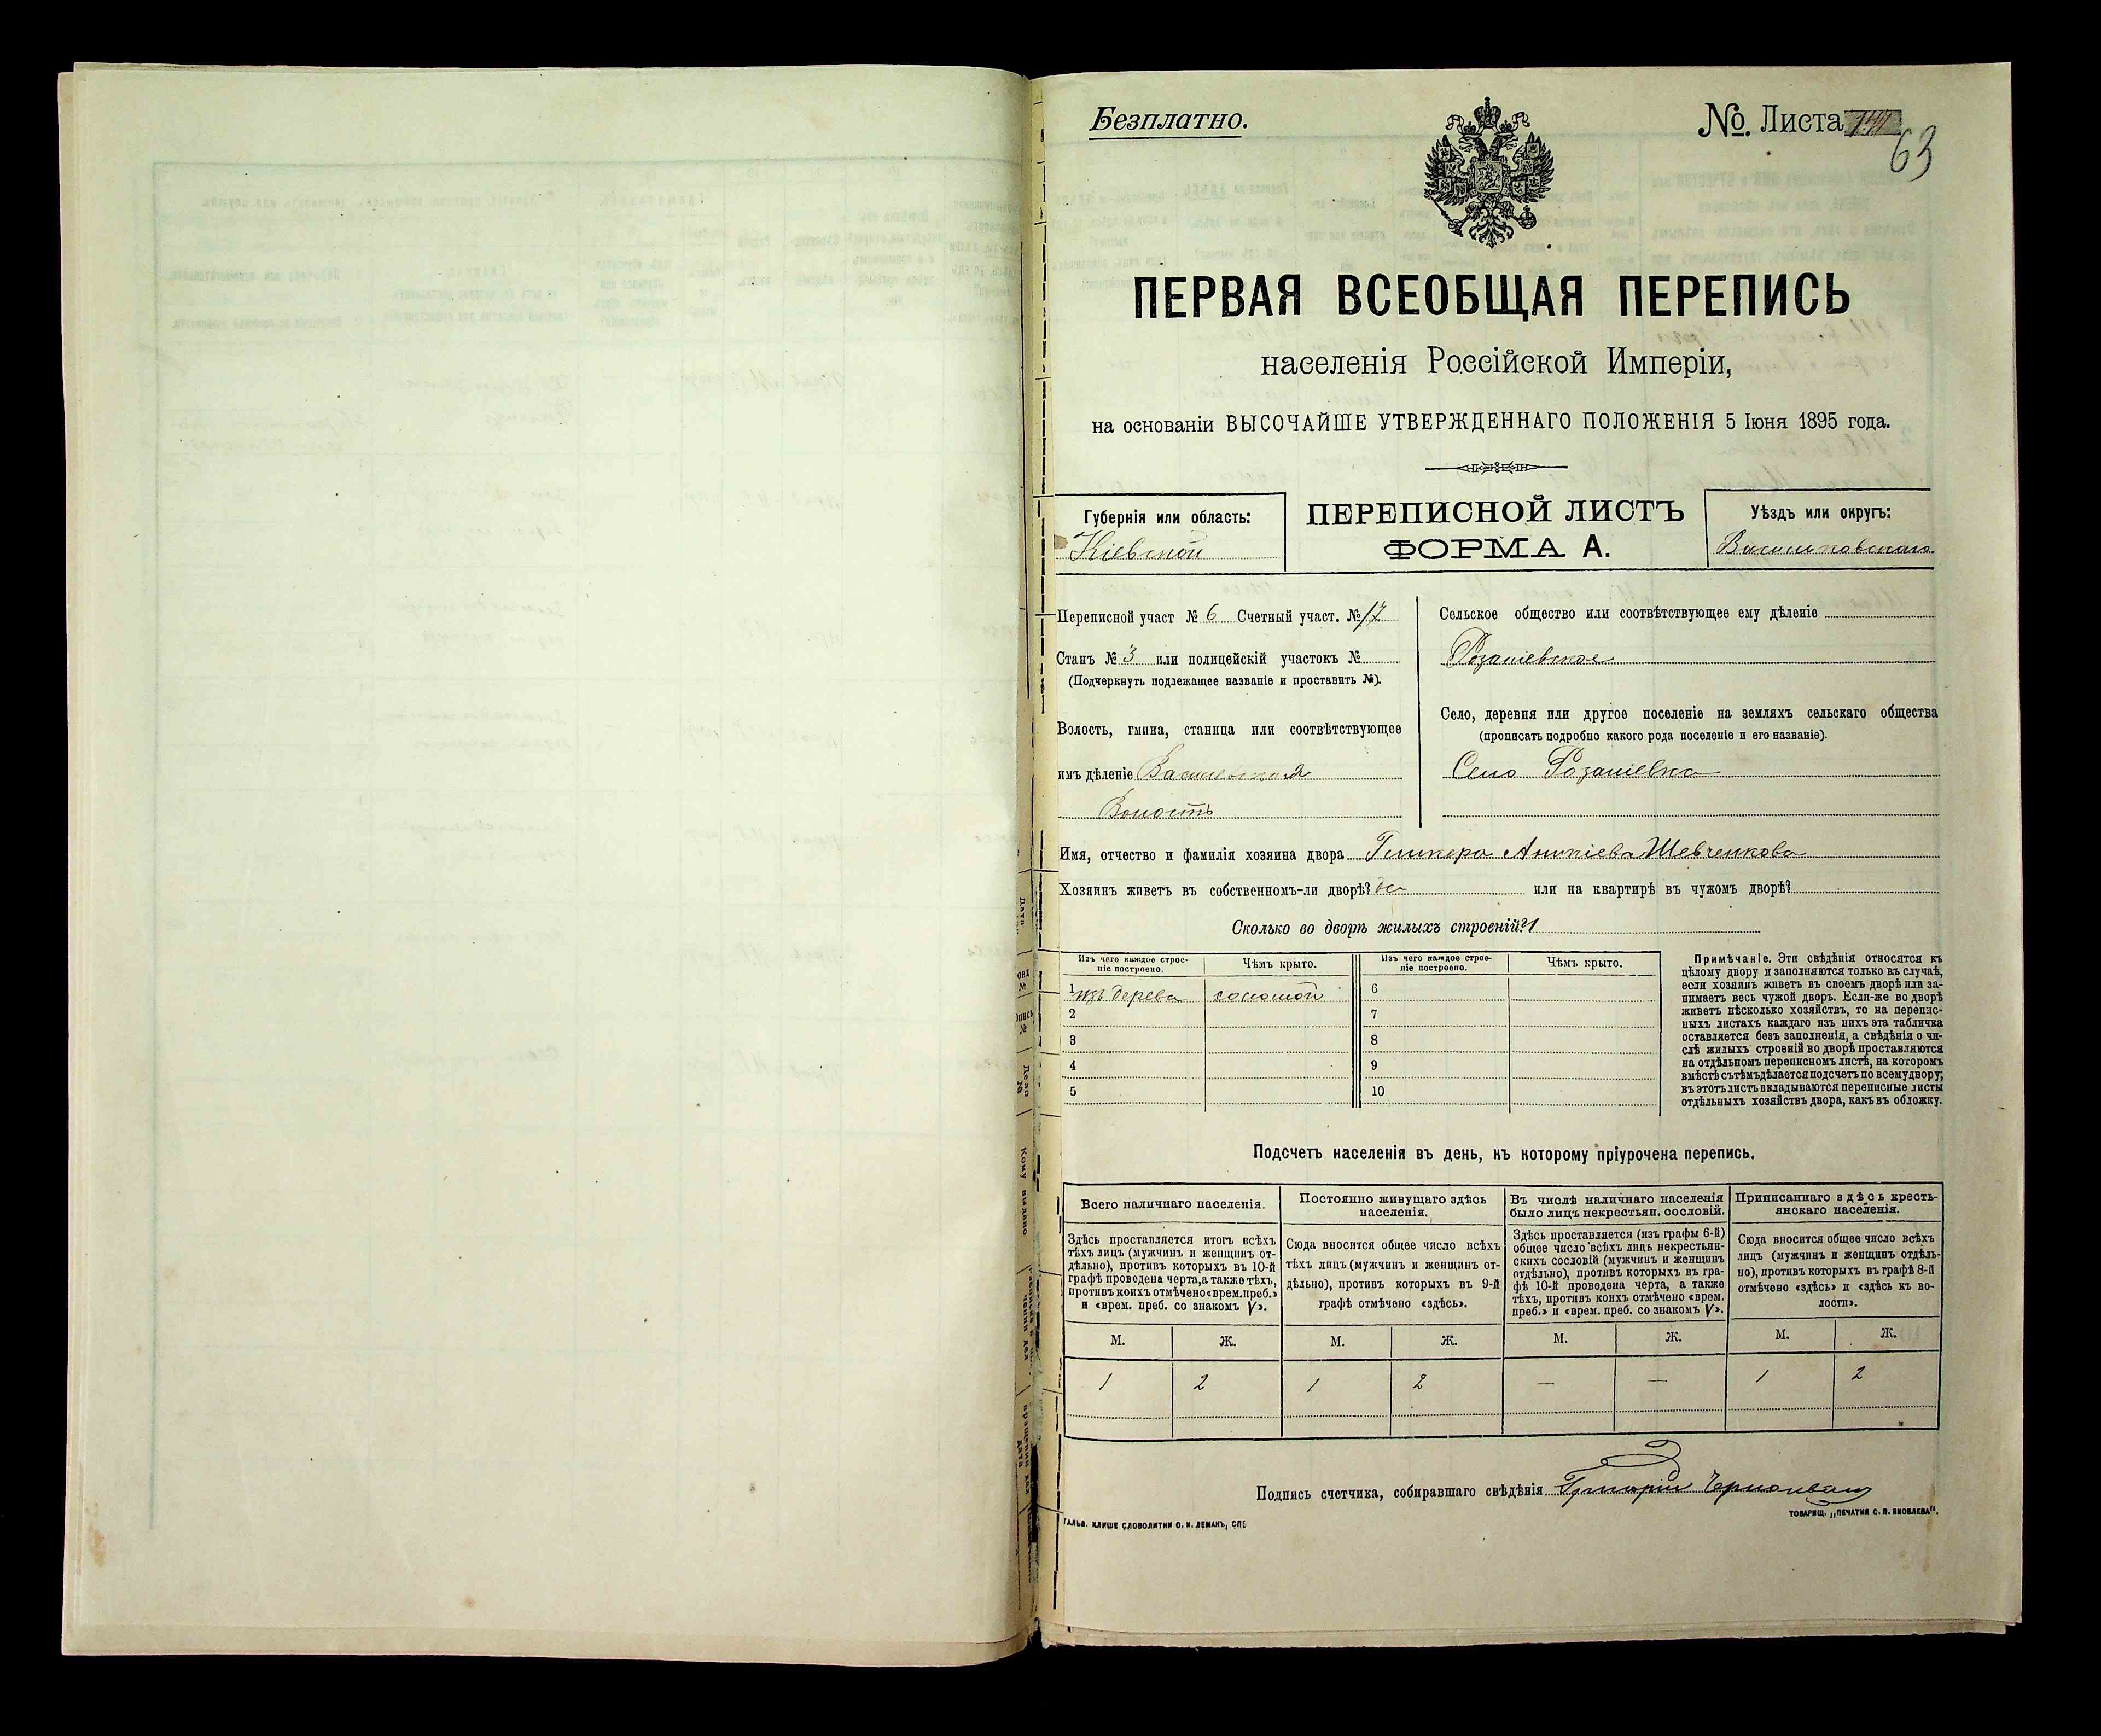 Безплатно.
№ Листа
63
ПЕРВАЯ ВСЕОБЩАЯ ПЕРЕПИСЬ
населенія Россійской Имперіи,
на основаніи ВЫСОЧАЙШЕ УТВЕРЖДЕННАГО ПОЛОЖЕНІЯ 5 Іюня 1895 года.
Губернія или область:
Кіевской
ПЕРЕПИСНОЙ ЛИСТЪ
ФОРМА А.
Уѣздъ или округъ:
Васильковскаго
Переписной участ № 6 Счетный участ. № 17
Станъ № 3 или полицейскій участокъ №
(Подчеркнуть подлежащее названіе и проставить №).
Волость, гмина, станица или соотвѣтствующее
имъ дѣленіе
Волость
Сельское общество или соотвѣтствующее ему дѣленіе
Село, деревня или другое поселеніе на земляхъ сельскаго общества
(прописать подробно какого рода поселеніе и его названіе).
Село
Имя, отчество и фамилія хозяина двора Шевченкова
Хозяинъ живетъ въ собственномъ-ли дворѣ? да или на квартирѣ въ чужомъ дворѣ?
Сколько во дворѣ жилыхъ строеній? 1
Изъ чего каждое строе-
ніе построено.
Чѣмъ крыто.
Изъ чего каждое строе-
ніе построено.
Чѣмъ крыто.
1 изъ дерева соломой 6
2 7
3 8
4 9
5 10
Примѣчаніе. Эти свѣдѣнія относятся къ
цѣлому двору и заполняются только въ случаѣ,
если хозяинъ живетъ въ своемъ дворѣ или за-
нимаетъ весь чужой дворъ. Если-же во дворѣ
живетъ нѣсколько хозяйствъ, то на перепис-
ныхъ листахъ каждаго изъ нихъ эта табличка
оставляется безъ заполненія, а свѣдѣнія о чи-
слѣ жилыхъ строеній во дворѣ проставляются
на отдѣльномъ переписномъ листѣ, на которомъ
вмѣстѣ съ тѣмъ дѣлается подсчетъ по всему двору;
въ этотъ листъ вкладываются переписные листы
отдѣльныхъ хозяйствъ двора, какъ въ обложку.
Подсчетъ населенія въ день, къ которому пріурочена перепись.
Всего наличнаго населенія.
Здѣсь проставляется итогъ всѣхъ
тѣхъ лицъ (мужчинъ и женщинъ от-
дѣльно), противъ которыхъ въ 10-й
графѣ проведена черта, а также тѣхъ,
противъ коихъ отмѣчено «врем. преб.»
и «врем. преб. со знакомъ V».
Постоянно живущаго здѣсь
населенія.
Сюда вносится общее число всѣхъ
тѣхъ лицъ (мужчинъ и женщинъ от-
дѣльно), противъ которыхъ въ 9-й
графѣ отмѣчено «здѣсь».
Въ числѣ наличнаго населенія
было лицъ некрестьян. сословій.
Здѣсь проставляется (изъ графы 6-й)
общее число всѣхъ лицъ некрестьян-
скихъ сословій (мужчинъ и женщинъ
отдѣльно), противъ которыхъ въ гра-
фѣ 10-й проведена черта, а также
тѣхъ, противъ коихъ отмѣчено «врем.
преб.» и «врем. преб. со знакомъ V».
Приписаннаго здѣсь кресть-
янскаго населенія.
Сюда вносится общее число всѣхъ
лицъ (мужчинъ и женщинъ отдѣль-
но), противъ которыхъ въ графѣ 8-й
отмѣчено «здѣсь» и «здѣсь къ во-
лости».
М. Ж. М. Ж. М. Ж. М. Ж.
1 2 1 2 — — 1 2
Подпись счетчика, собиравшаго свѣдѣнія Григорій
ГАЛЬВ. КЛИШЕ СЛОВОЛИТНИ О. И. ЛЕМАНЪ, СПБ
ТОВАРИЩ. „ПЕЧАТНЯ С. П. ЯКОВЛЕВА“.